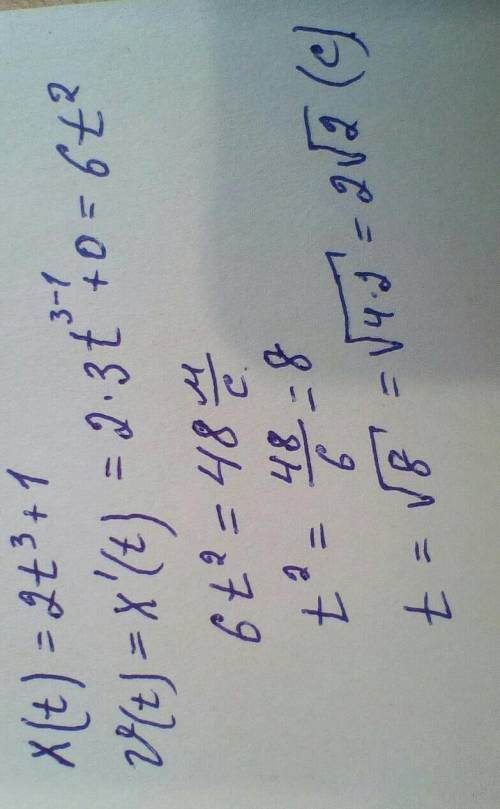 x(t) = 2t³ + 1
v(t) = x'(t) = 2·3t³⁻¹ + 0 = 6t²
6t² = 48 м/с
t² = 48/6 = 8
t = √8 = √4·2 = 2√2 (с)